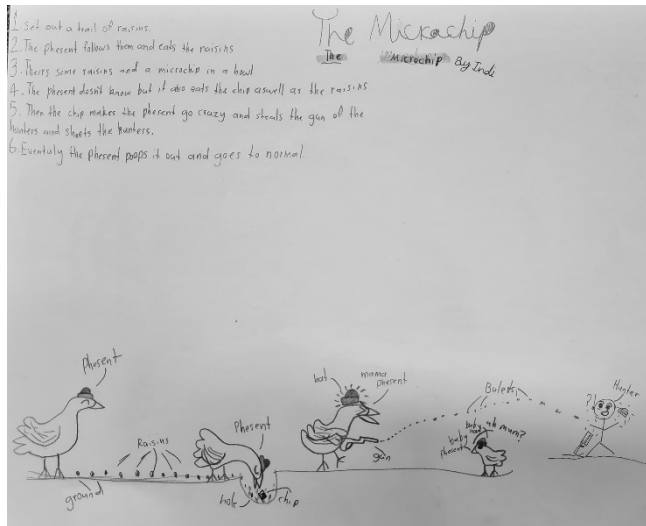 The Micrachip
The Microchip By Indi
1. Set out a trail of raisins.
2. The phesent follows them and eats the raisins
3. Theirs some raisins and a microchip in a howl
4. The phesent doesn't know but it also eats the chip aswell as the raisins
5. Then the chip makes the phesent go crazy and steals the gun of the
hunters and shoots the hunters.
6. Eventuly the phesent poops it out and goes to normal
Phesent
Raisins
ground
Phesent
hole
chip
hat
mama
phesent
gun
Bulets
baby
uh mum?
baby
phesent
?!
Hunter